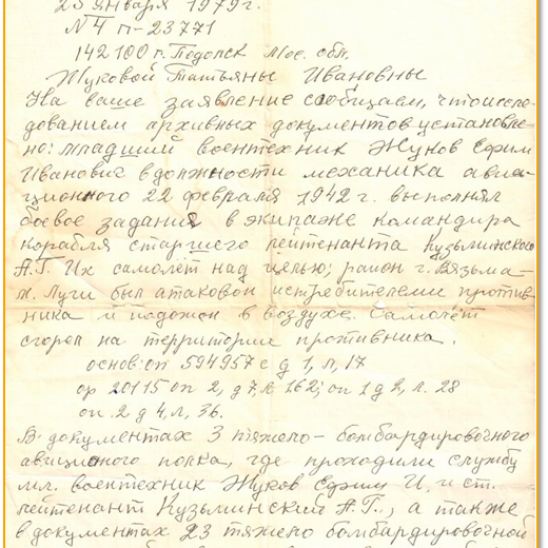 25 января 1979 г.
N 4 п-23771
142100 г. Подольск Мос. обл.
Жуковой Татьяны Ивановны
На ваше заявление сообщаем, что иссле-
дованием архивных документов установле-
но: младший воентехник Жуков Ефим
Иванович в должности механика авиа-
ционного 22 февраля 1942 г. выполнял
боевое задания в экипаже командира
корабля старшего лейтенанта Кузьминского
А.Г. Их самолёт над целью; район г. Вязьма-
м. Луги был атакован истребителями против-
ника и подожжен в воздухе. Самолёт
сгорел на территории противника.
основ: оп 594957 с д 1, л, 17
ор 20115 оп 2, д 7, л 162; оп 1 д 2, л. 28
оп. 2 д 4, л, 36.
В документах 3 тяжело-бомбардировочного
авиционого полка, где проходили службу
мл. воентехник Жуков Ефим И. и ст.
лейтенант Кузьминский А.Г., а также
в документах 23 тяжело бомбардировочной